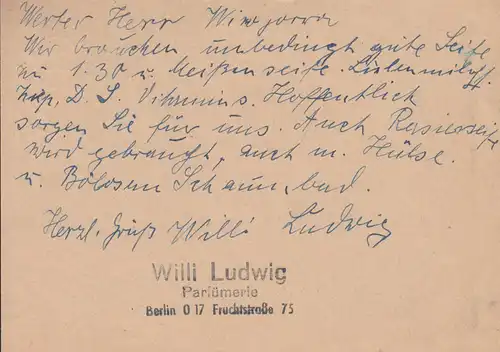 Werter Herr
Wir brauchen unbedingt gute Seife
zu 1.30 u. Meißenseife. Lilienmilch.
D. S. Vitamins. Hoffentlich
sorgen Sie für uns. Auch Rasierseife
wird gebraucht, auch m. Hülse.
u. Schaumbad.
Herzl. Gruß Willi Ludwig
Willi Ludwig
Parfümerie
Berlin O 17 Fruchtstraße 75